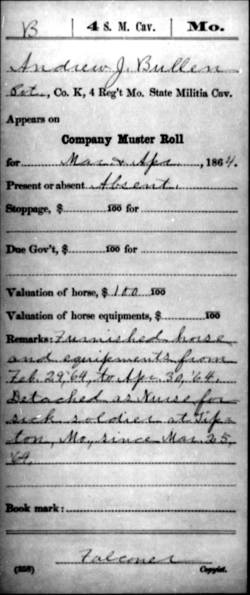 B | 4 S. M. Cav. | Mo.
Andrew J. Bullen
Pvt., Co. K, 4 Reg't Mo. State Militia Cav.
Appears on
Company Muster Roll
for Mar & Apr, 1864.
Present or absent Absent.
Stoppage, $ 100 for
Due Gov't, $ 100 for
Valuation of horse, $ 100 100
Valuation of horse equipments, $ 100
Remarks: Furnished horse
and equipments from
Feb. 29, '64, to Apr. 30, '64.
Detached as Nurse for
sick soldier at Tip-
ton, Mo., since Mar. 25,
'64.
Book mark:
Falconer
(358)